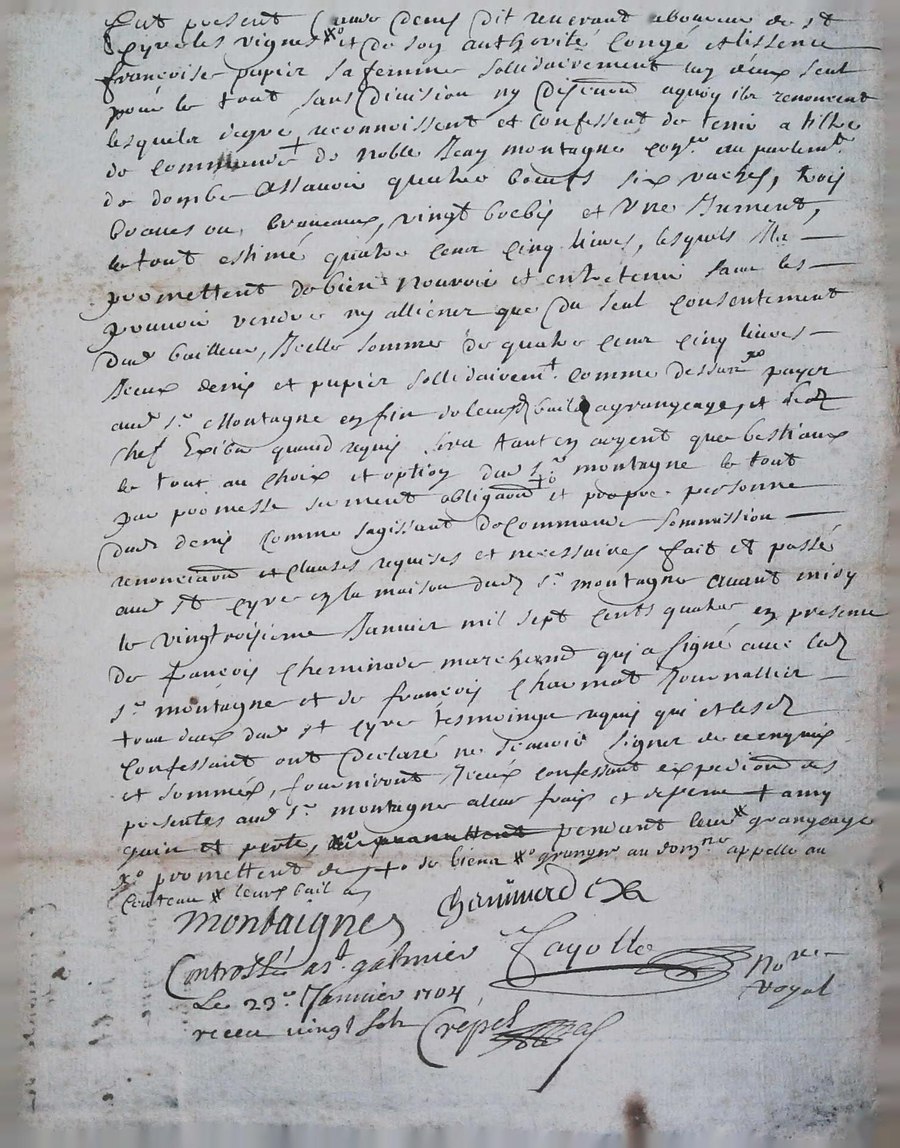 fut present Denis dit reverant laboureur de st
Cyre les vignes xo et de son authorité congé et lissence
françoise papier sa femme sollidairement luy deux seul
pour le tout sans division ny aquoy ils renoncent
lesquels degré reconnoissent et confessent de tenir a tiltre
de commande + de noble Jean montagne cony.r au parlem.t
de dombe assavoir quatre boeufs six vaches, trois
braues ou braueaux, vingt brebis et Une Jument,
le tout estimé quatre cent cinq livres, lesquels Ils
promettent de bien nourrir et entretenir sans les
pouvoir vendre ny alliener que du seul consentement
dud bailleur, Icelle somme de quatre cent cinq livres
Iceux denis et papier sollidairem.t comme dessus xo payer
aud s.r Montagne en fin de leurd bail a grangeage, et
chef Exiber quand requis sera tant en argent que bestiaux
le tout au choix et option dud s.r montagne le tout
par promesse serment obligaõn +o et propre personne
dud denis comme sagissant de Commande sommission
renonciaõn et clauses requises et necessaires fait et passé
aud st Cyre en la maison dud s.r montagne avant midy
le vingtroizieme Janvier mil sept cents quatre en presence
de françois Cheminade marchand qui a signé avec led
s.r montagne et de françois Charmat Journallier
tous deux dud st Cyre tesmoings requis qui et lesd
confessant ont declaré ne scavoir signer de ce enquis
et sommés, fourniront Iceux confessant expedion des
presentes aud s.r montagne a leur frais et despens + amy
gain et perte, pendant leur x grangeage
xo promettent +o de biens xo granger au dom.ne appelle au
Couteau x leurs bail
Montaignes Cheminade
Controllé a s.t galmier Fayolle No.re royal
Le 23.e Janvier 1704
receu vingt sols Crepet